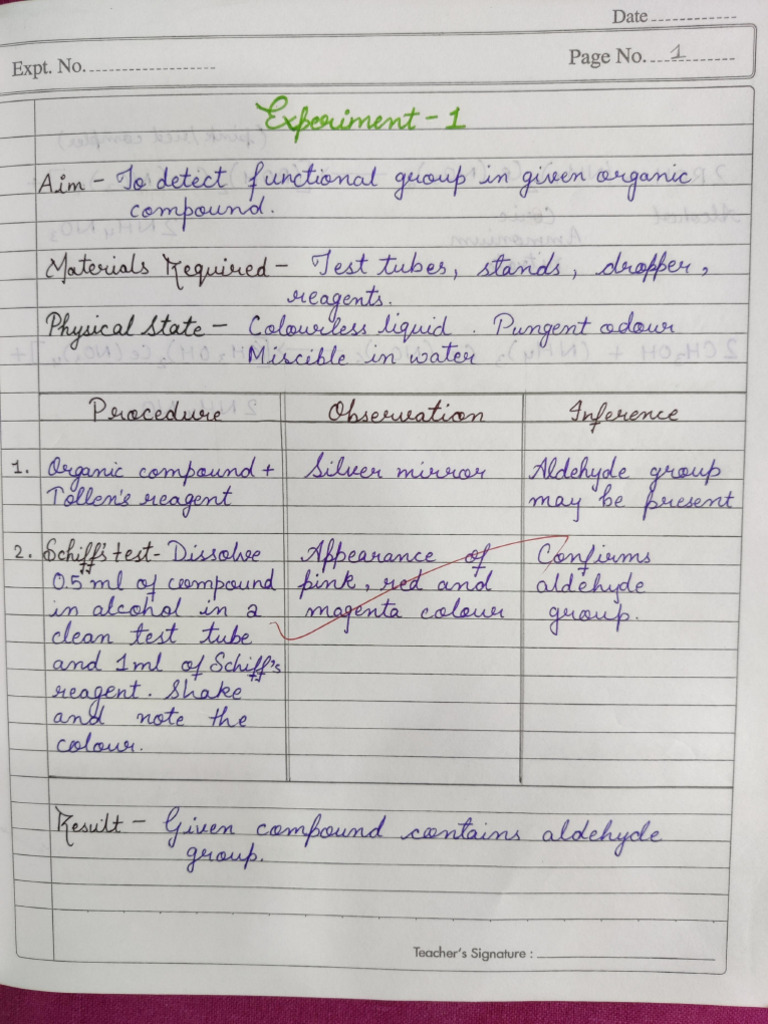 Date
Expt. No.
Page No. 1
Experiment - 1
Aim - To detect functional group in given organic
compound.
Materials Required - Test tubes, stands, dropper,
reagents.
Physical State - Colourless liquid. Pungent odour
Miscible in water
Procedure Observation Inference
1. Organic compound + Silver mirror Aldehyde group
Tollen's reagent may be present
2. Schiff's test - Dissolve Appearance of Confirms
0.5 ml of compound pink, red and aldehyde
in alcohol in a magenta colour group.
clean test tube
and 1ml of Schiff's
reagent. Shake
and note the
colour.
Result - Given compound contains aldehyde
group.
Teacher's Signature :